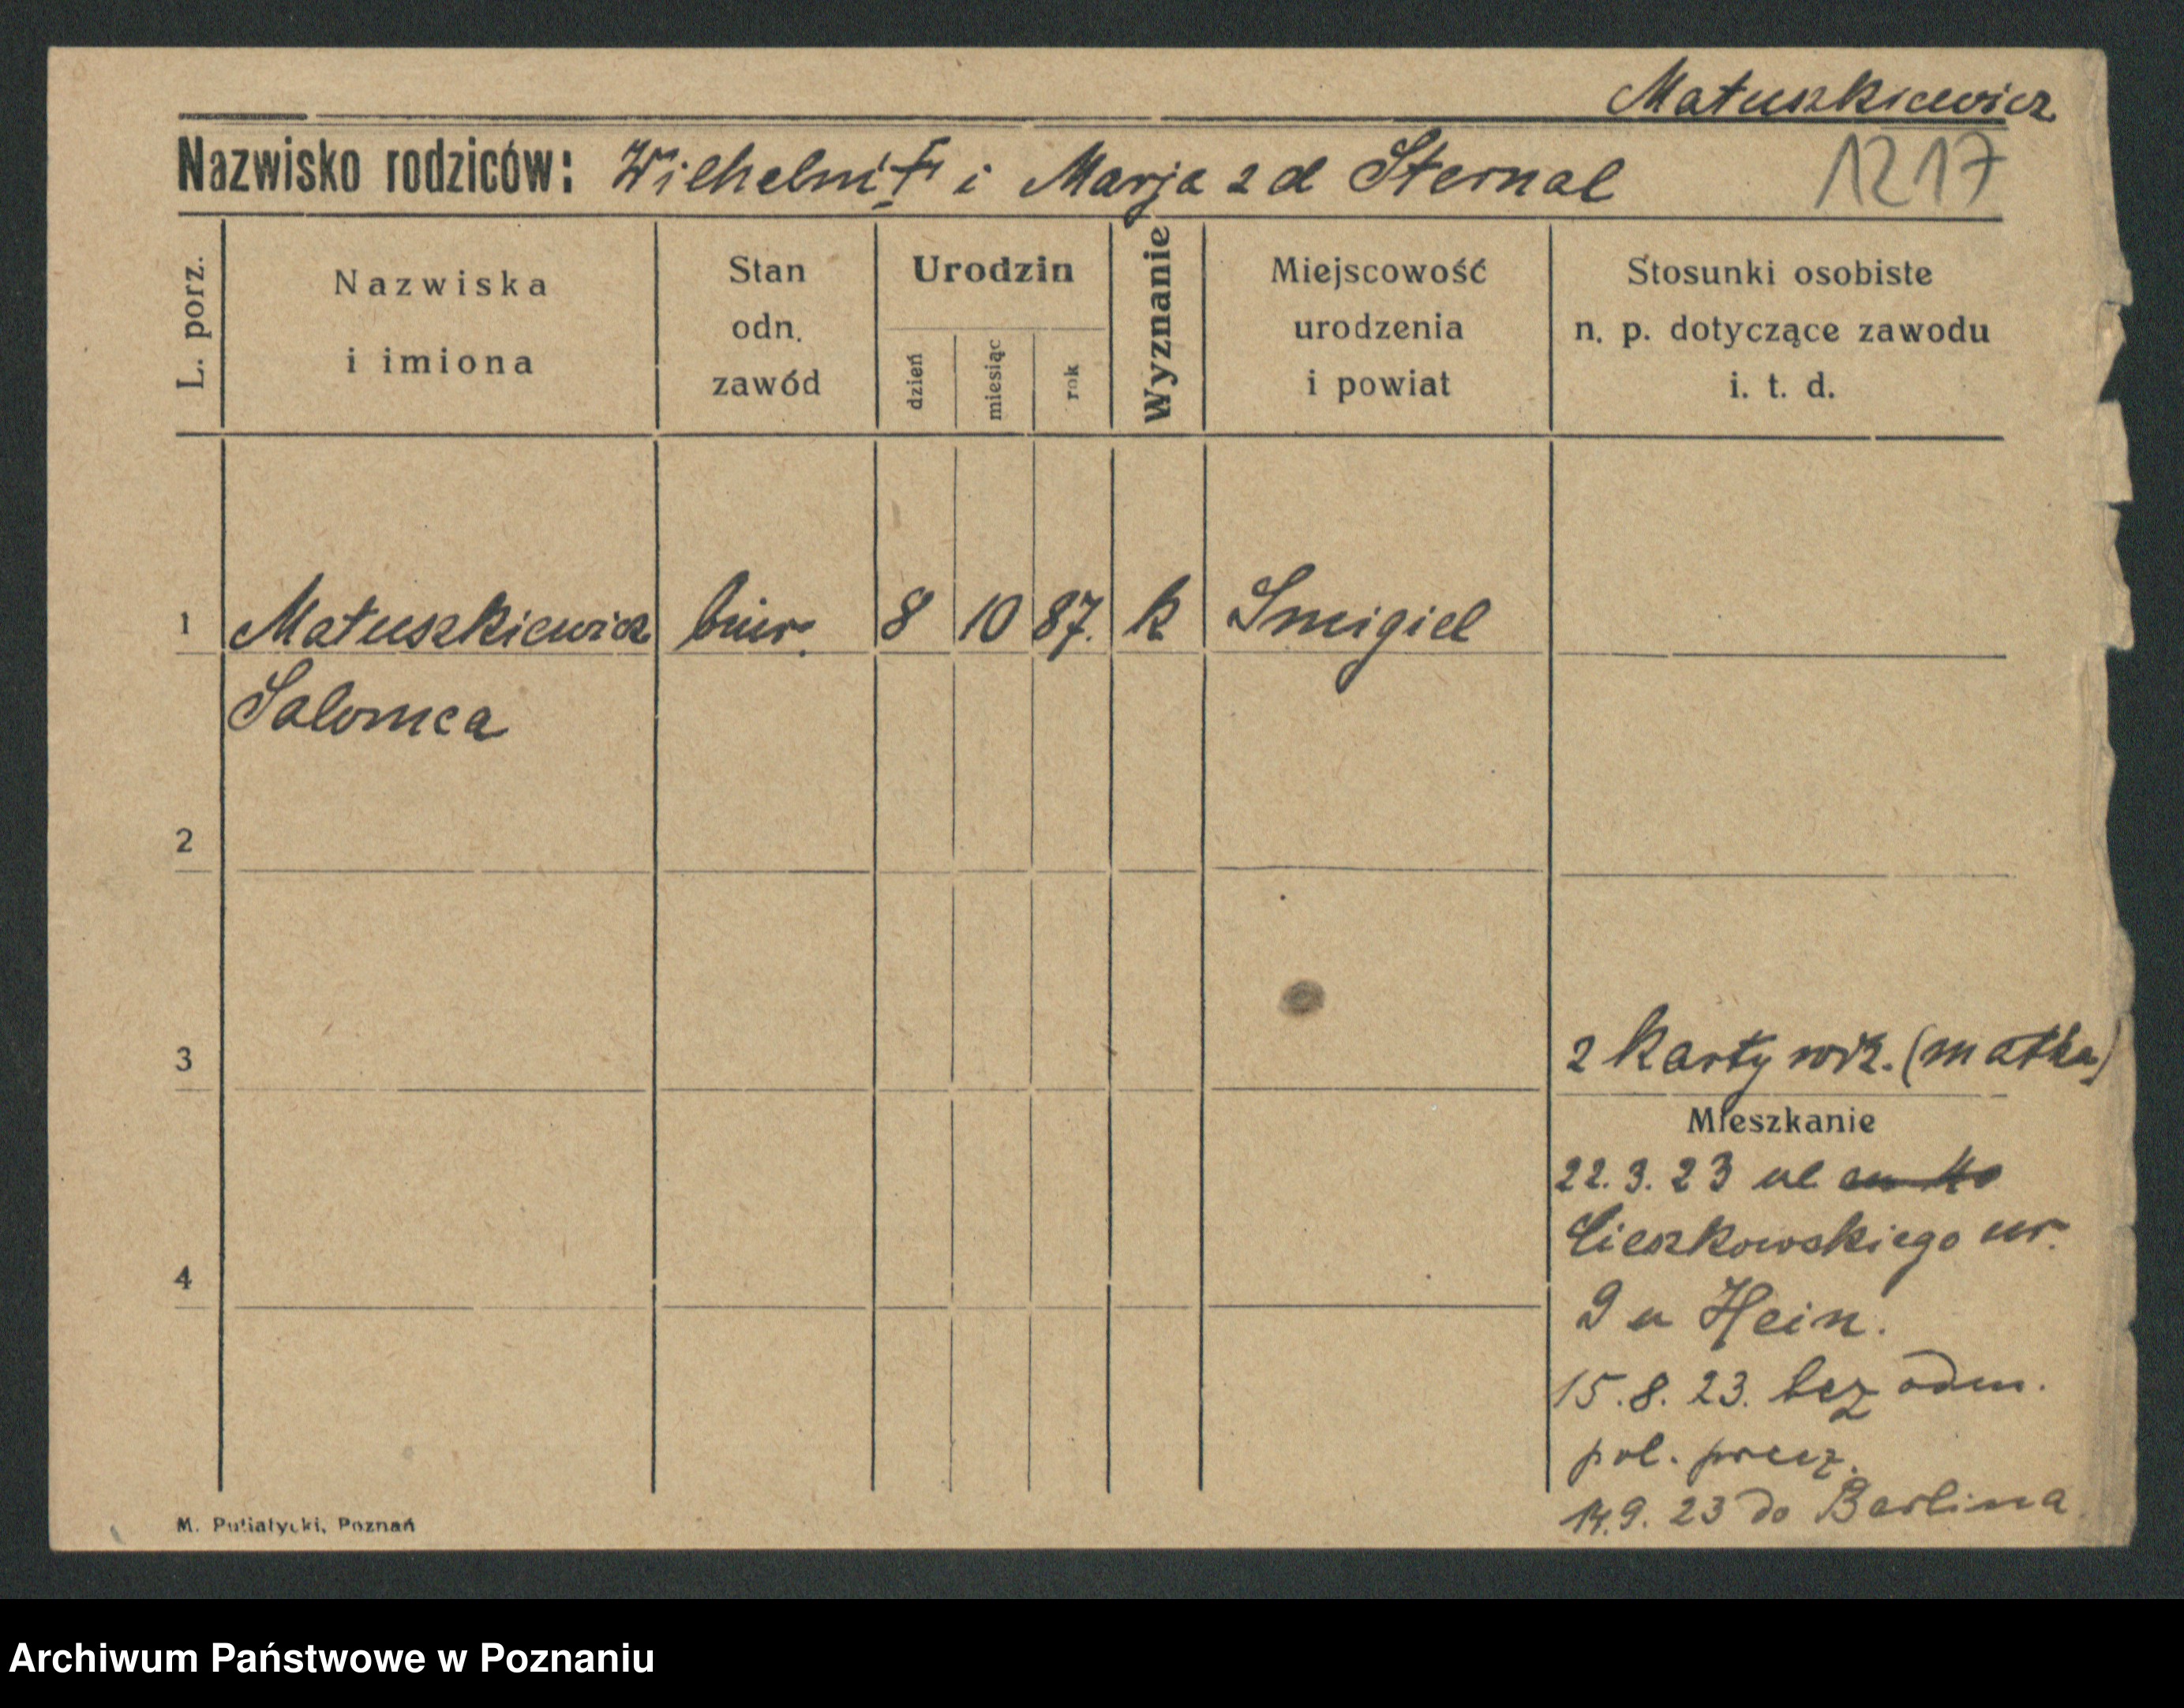 Matuszkiewicz
Nazwisko rodziców: Wilhelm † i Marja z d Sternal
1217
L. porz.
Nazwiska
i imiona
Stan
odn.
zawód
Urodzin
dzień
miesiąc
rok
Wyznanie
Miejscowość
urodzenia
i powiat
Stosunki osobiste
n. p. dotyczące zawodu
i. t. d.
1 Matuszkiewicz biur. 8 10 87. k Smigiel
Salomea
2
3
2 karty rodz. (matka)
Mieszkanie
22.3.23 ul
Cieszkowskiego nr.
4
9 u Hein.
15.8.23. bez odm.
pol. precz.
14.9.23 do Berlina
M. Putiatycki, Poznań
Archiwum Państwowe w Poznaniu